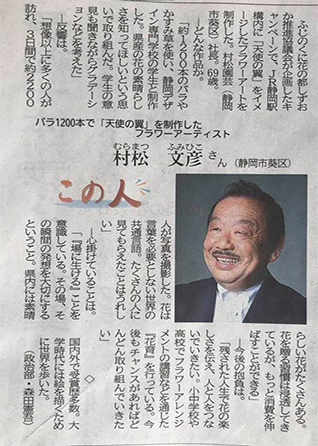 ふじのくに花の都しずお
か推進協議会の企画したキ
ャンペーンで、JR静岡駅
構内に「天使の翼」をイメ
ージしたフラワーアートを
制作した。村松園芸(静岡
市葵区)社長。69歳。
―どんな作品か。
「約1200本のバラや
かすみ草を使い、静岡デザ
イン専門学校の学生と制作
した。県産の花の素晴らし
さを知ってほしいという思
いで取り組んだ。学生の意
見も聞きながらグラデーシ
ョンなどを考えた」
―反響は。
「想像以上に多くの人が
訪れ、3日間で約2200
バラ1200本で「天使の翼」を制作した
フラワーアーティスト
むらまつ ふみひこ
村松 文彦さん(静岡市葵区)
この人
人が写真を撮影した。花は
言葉を必要としない世界の
共通言語。たくさんの人に
見てもらえたことはうれし
い」
―心掛けていることは。
「『場に生ける』ことを
意識している。その場、そ
の瞬間の発想を大切にする
ということ。県内には素晴
らしい花がたくさんある。
花を贈る習慣は浸透してき
ているが、もっと消費を伸
ばすことができる」
―今後の抱負は。
「残された人生で花の楽
しさを伝え、人と人をつな
いでいきたい。小中学校や
高校でフラワーアレンジ
メントの講習などを通した
『花育』を行っている。今
後もチャンスがあればど
んどん取り組んでいきた
い」
◇
国内外で受賞歴多数。大
学時代には絵を描くため
に世界を歩いた。
(政治部・森田憲吾)